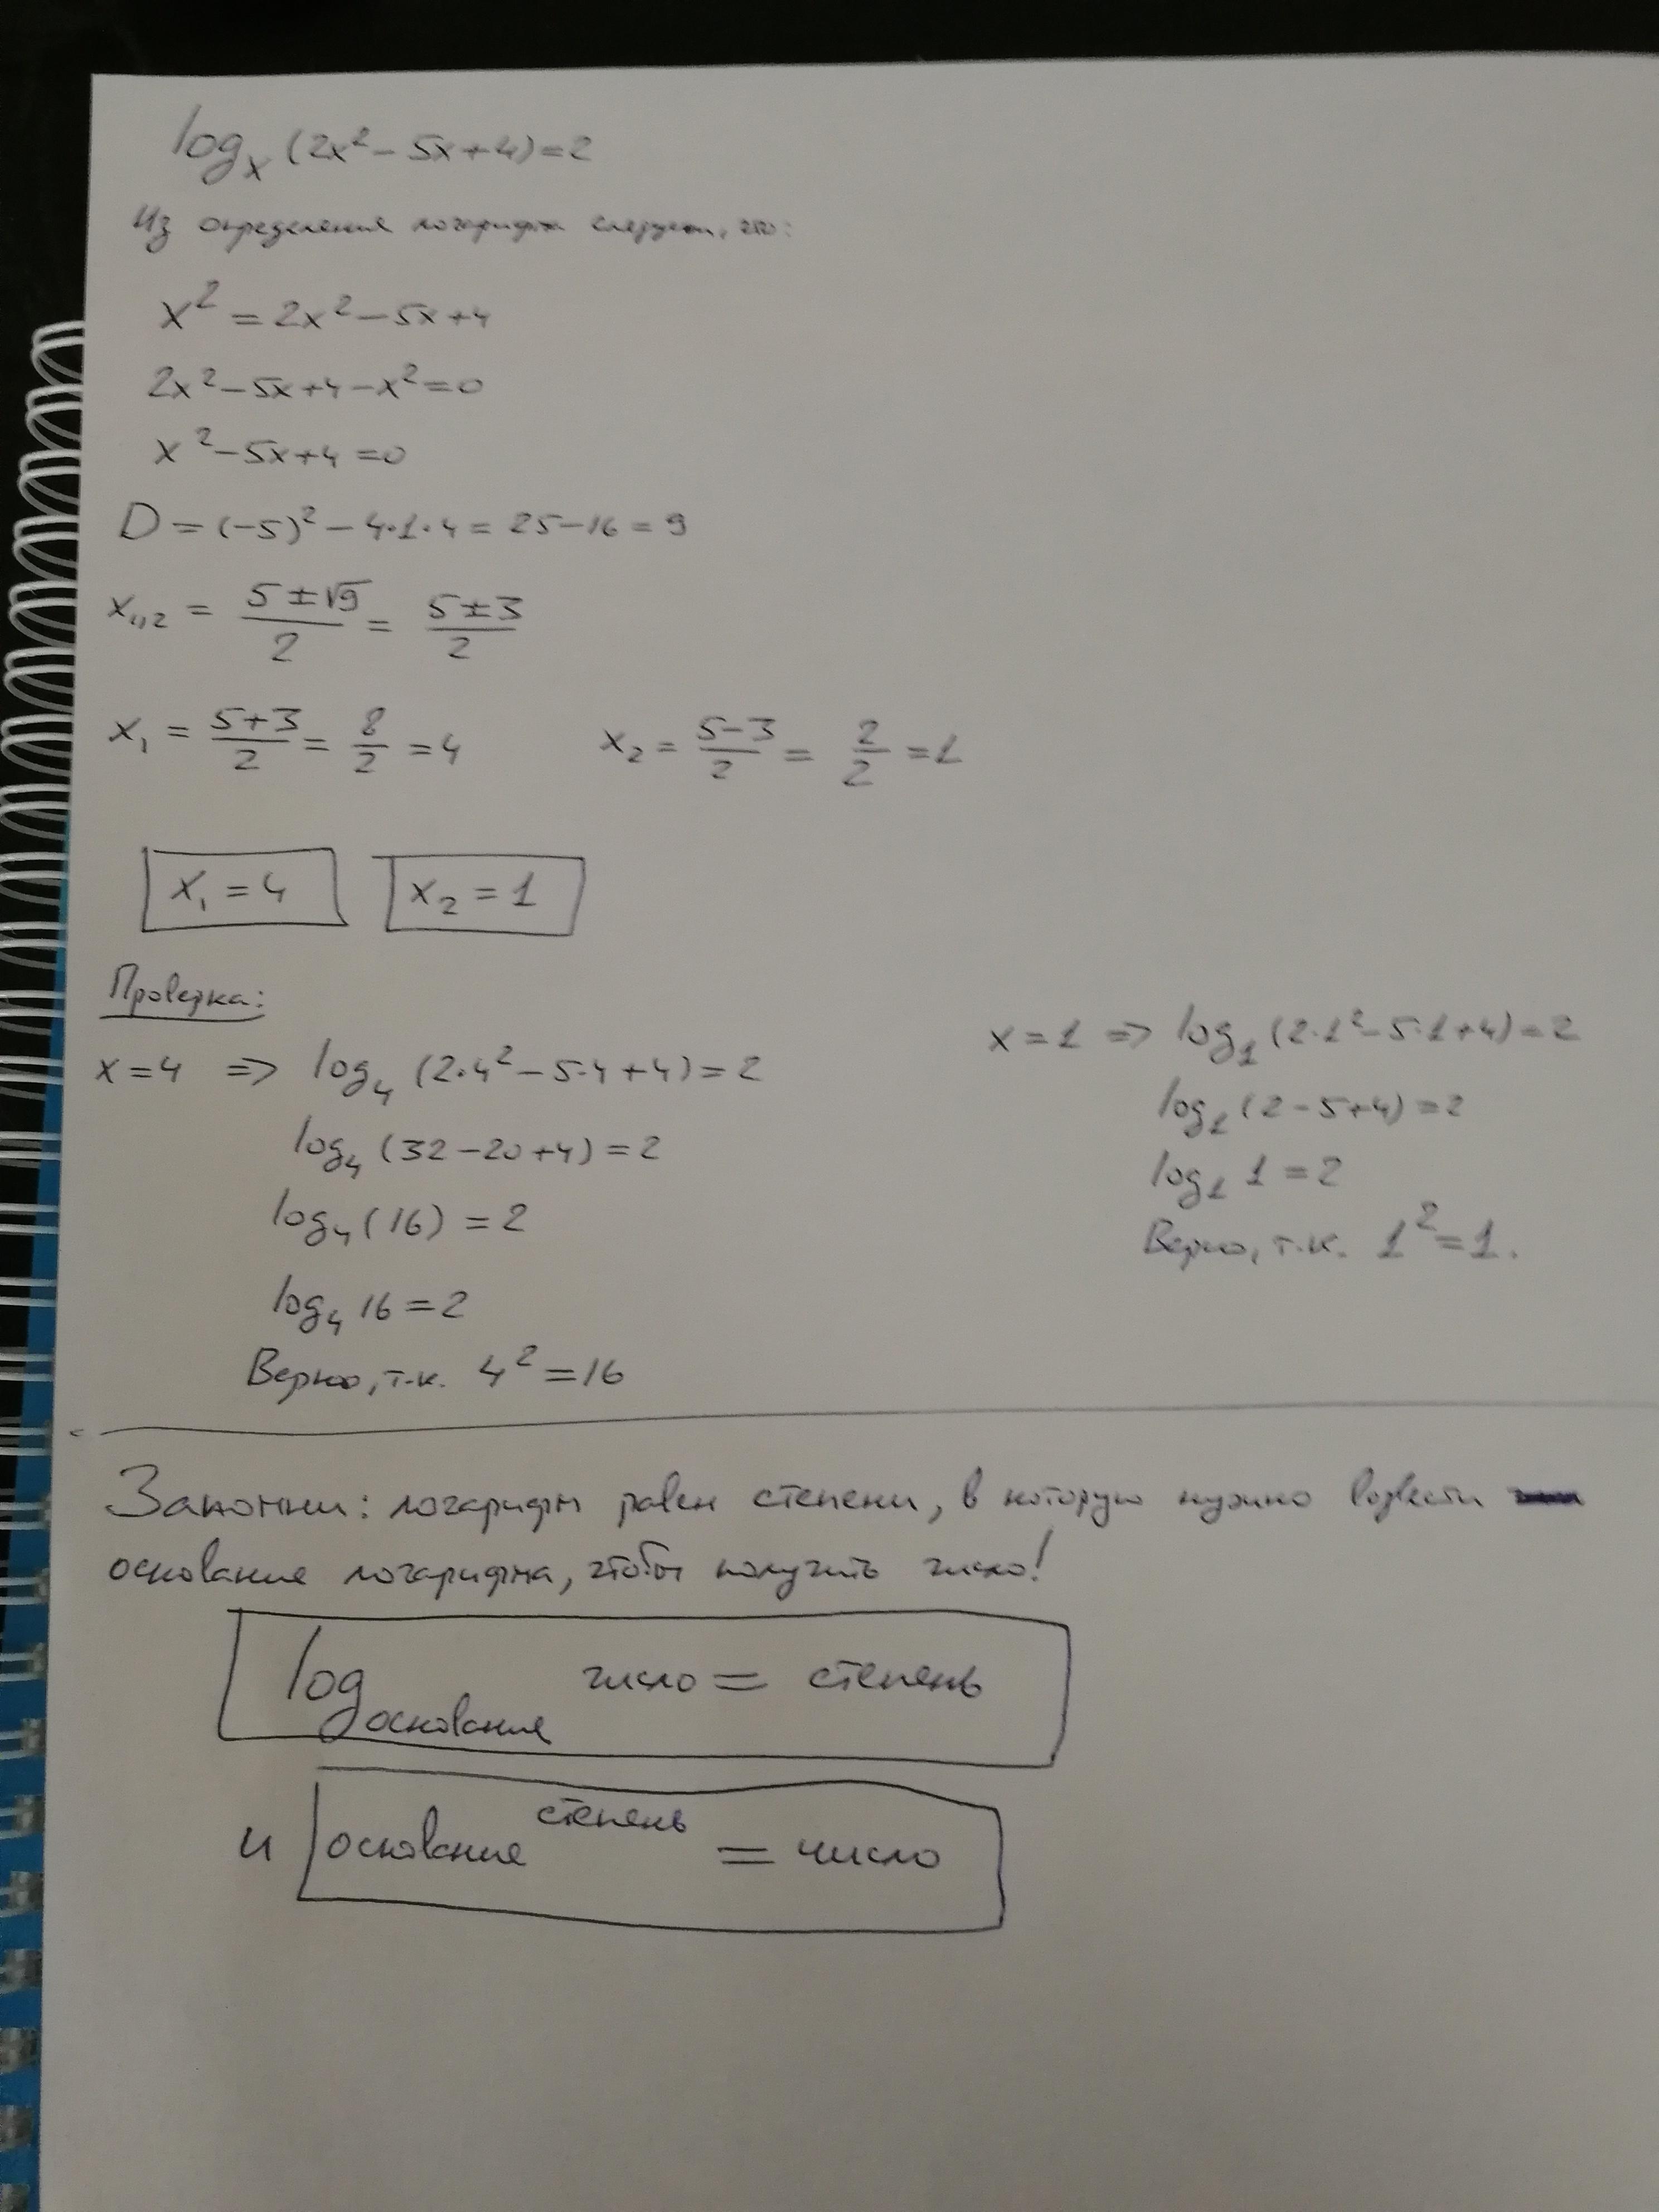 logₓ (2x² − 5x + 4) = 2
Из определения логарифма следует, что:
x² = 2x² − 5x + 4
2x² − 5x + 4 − x² = 0
x² − 5x + 4 = 0
D = (−5)² − 4·1·4 = 25 − 16 = 9
x₁,₂ = (5 ± √9)/2 = (5 ± 3)/2
x₁ = (5+3)/2 = 8/2 = 4    x₂ = (5−3)/2 = 2/2 = 1
x₁ = 4    x₂ = 1
Проверка:
x = 4 => log₄ (2·4² − 5·4 + 4) = 2
log₄ (32 − 20 + 4) = 2
log₄ (16) = 2
log₄ 16 = 2
Верно, т.к. 4² = 16
x = 1 => log₁ (2·1² − 5·1 + 4) = 2
log₁ (2 − 5 + 4) = 2
log₁ 1 = 2
Верно, т.к. 1² = 1.
Запомни: логарифм равен степени, в которую нужно возвести
основание логарифма, чтобы получить число!
log основание число = степень
и основание^степень = число